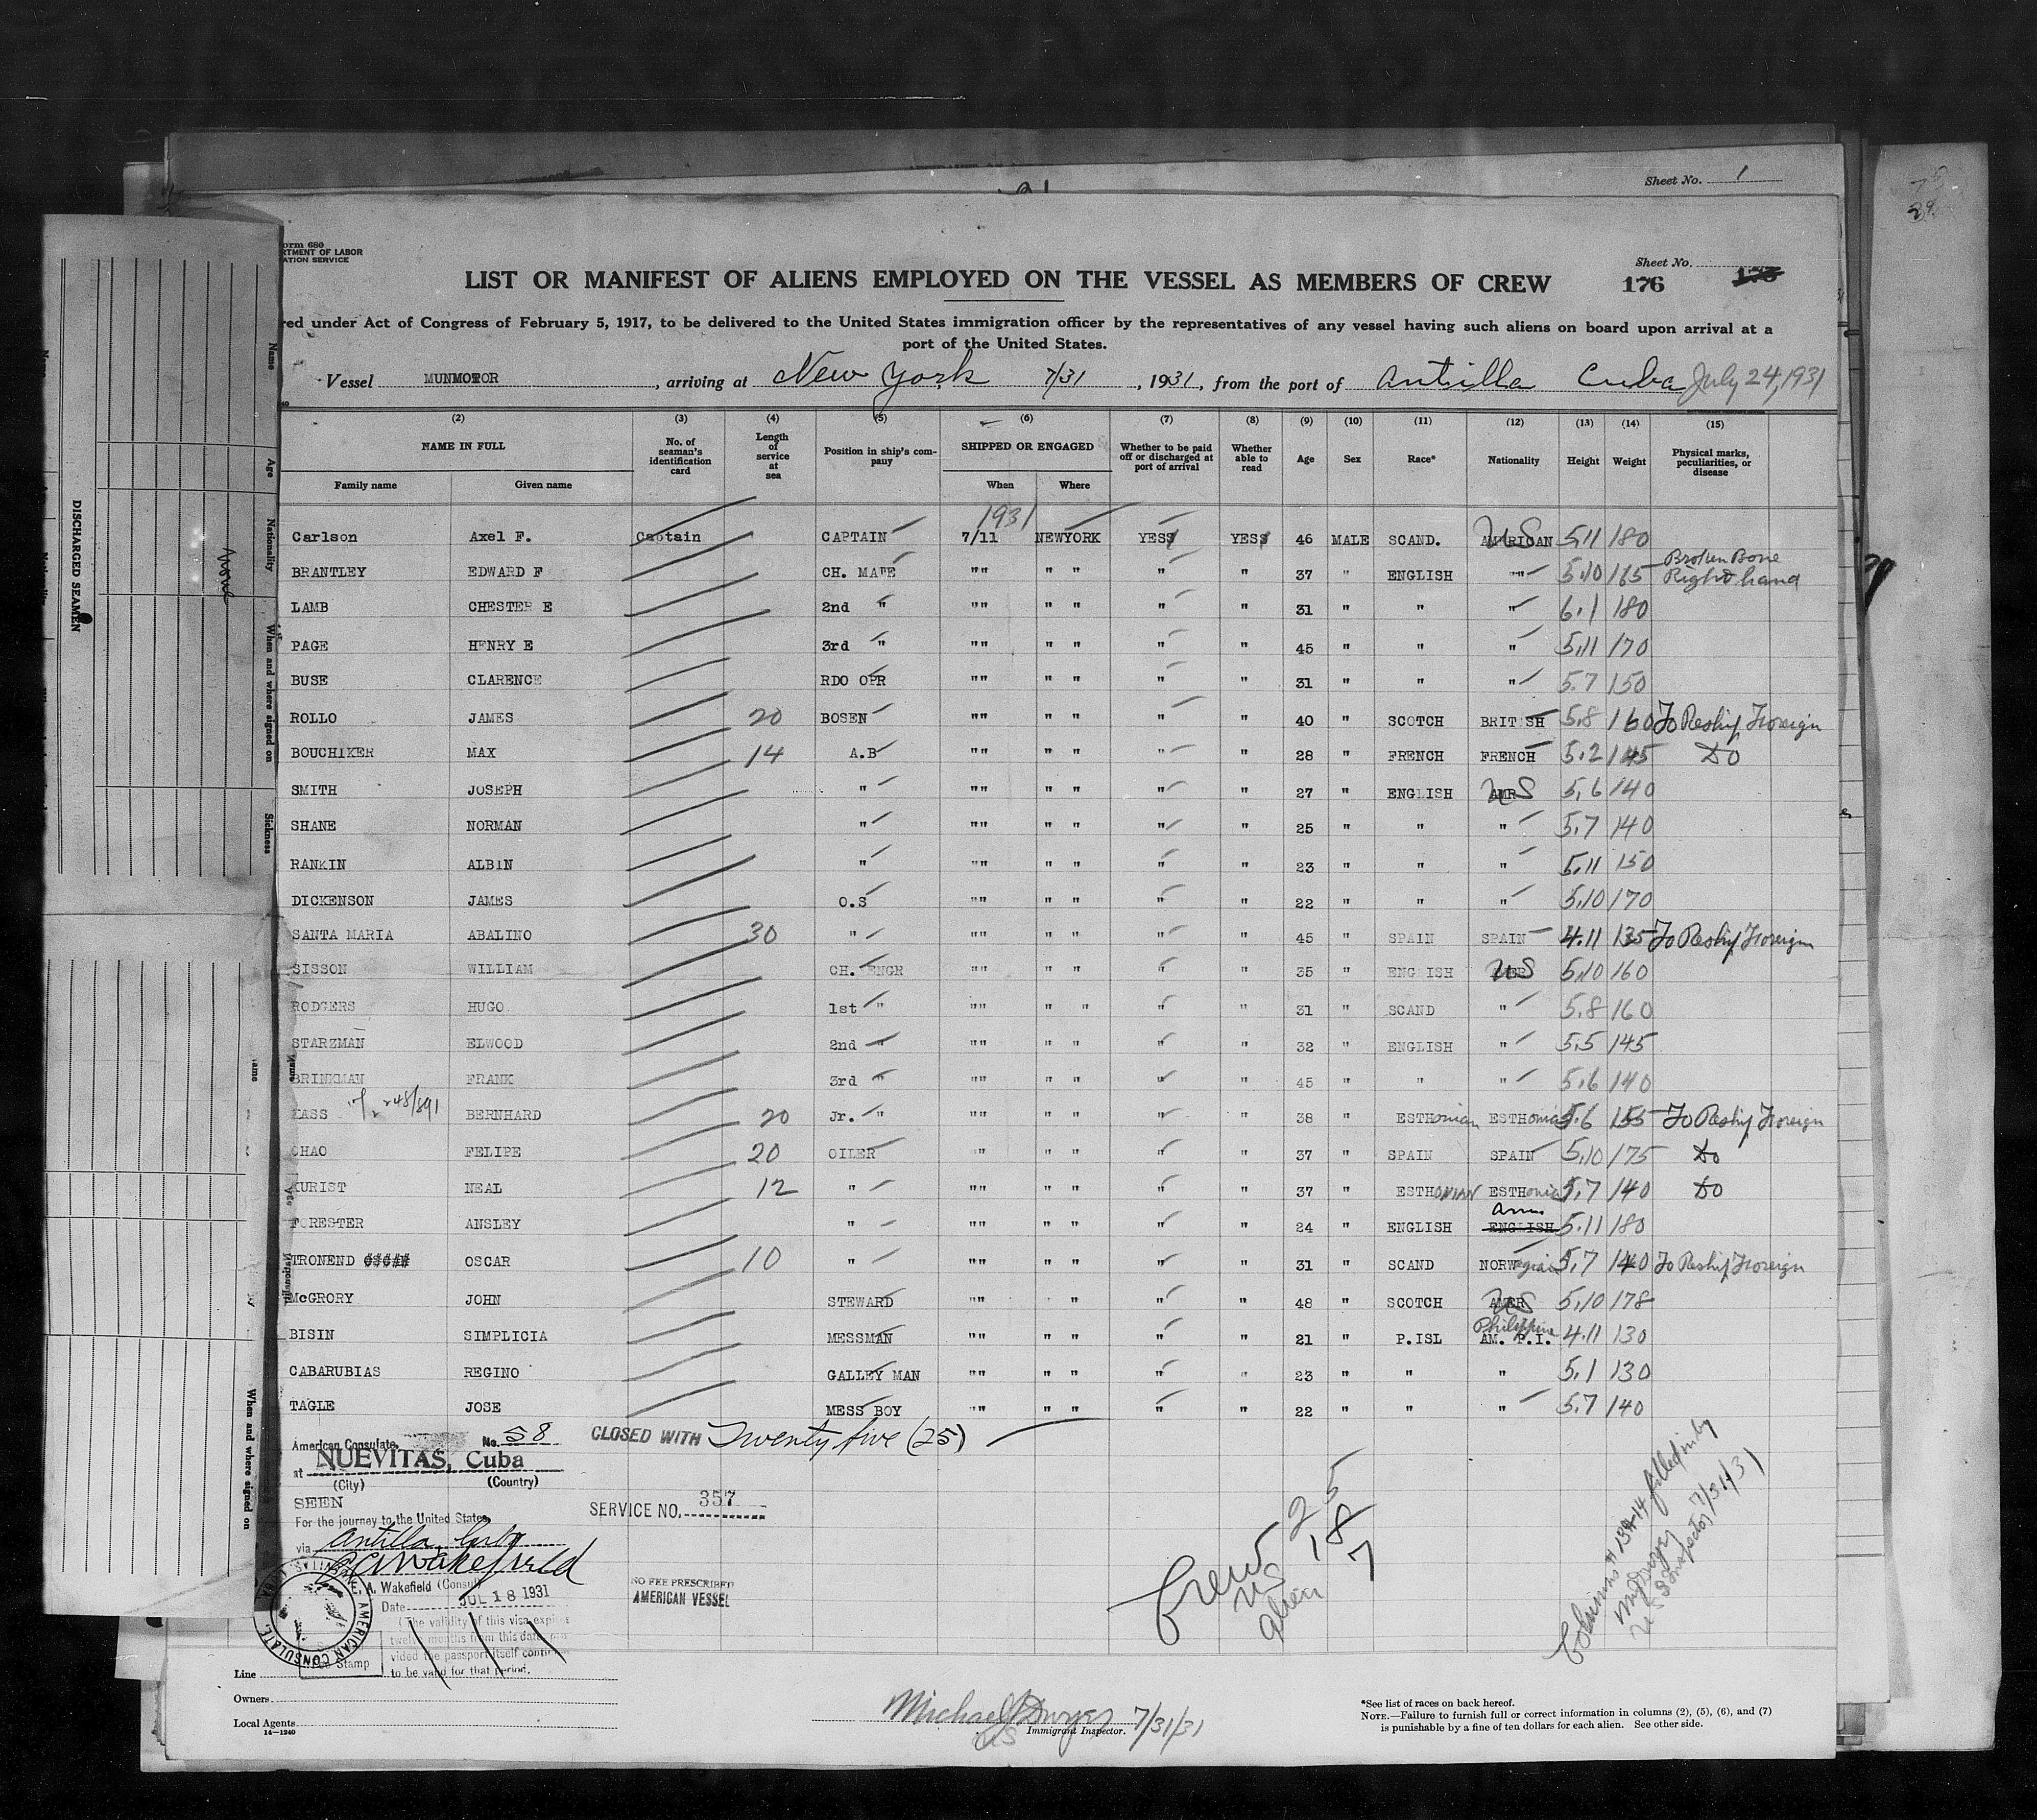 Sheet No. 1
Form 680
RTMENT OF LABOR
ATION SERVICE
Sheet No.
LIST OR MANIFEST OF ALIENS EMPLOYED ON THE VESSEL AS MEMBERS OF CREW 176 175
red under Act of Congress of February 5, 1917, to be delivered to the United States immigration officer by the representatives of any vessel having such aliens on board upon arrival at a
port of the United States.
Vessel MUNMOTOR, arriving at New York 7/31, 1931, from the port of Antilla Cuba July 24, 1931
(2) (3) (4) (5) (6) (7) (8) (9) (10) (11) (12) (13) (14) (15)
NAME IN FULL No. of seaman's identification card Length of service at sea Position in ship's company SHIPPED OR ENGAGED Whether to be paid off or discharged at port of arrival Whether able to read Age Sex Race* Nationality Height Weight Physical marks, peculiarities, or disease
Family name Given name When Where
1931
Carlson Axel F. Captain CAPTAIN 7/11 NEWYORK YES YES 46 MALE SCAND. AMERICAN US 5,11 180
BRANTLEY EDWARD F CH. MATE "" " " " " 37 " ENGLISH "" 5,10 165 Broken Bone Right hand
LAMB CHESTER E 2nd " "" " " " " 31 " " " 6.1 180
PAGE HENRY E 3rd " "" " " " " 45 " " " 5,11 170
BUSE CLARENCE RDO OPR "" " " " " 31 " " " 5.7 150
ROLLO JAMES 20 BOSEN "" " " " " 40 " SCOTCH BRITISH 5.8 160 To Reship Foreign
BOUCHIKER MAX 14 A.B "" " " " " 28 " FRENCH FRENCH 5.2 145 Do
SMITH JOSEPH " "" " " " " 27 " ENGLISH AMR US 5,6 140
SHANE NORMAN " "" " " " " 25 " " " 5,7 140
RANKIN ALBIN " "" " " " " 23 " " " 5,11 150
DICKENSON JAMES O.S "" " " " " 22 " " " 5,10 170
SANTA MARIA ABALINO 30 " "" " " " " 45 " SPAIN SPAIN 4.11 135 To Reship Foreign
SISSON WILLIAM CH. ENGR "" " " " " 35 " ENGLISH AMER US 5,10 160
RODGERS HUGO 1st " "" " " " " 31 " SCAND " 5.8 160
STARZMAN ELWOOD 2nd " "" " " " " 32 " ENGLISH " 5.5 145
BRINKMAN FRANK 3rd " "" " " " " 45 " " " 5.6 140
KASS BERNHARD 20 Jr. " "" " " " " 38 " ESTHonian ESTHonia 5.6 155 To Reship Foreign
CHAO FELIPE 20 OILER "" " " " " 37 " SPAIN SPAIN 5,10 175 Do
KURIST NEAL 12 " "" " " " " 37 " ESTHONIAN ESTHonia 5,7 140 Do
FORESTER ANSLEY " "" " " " " 24 " ENGLISH ENGLISH Am 5.11 180
TRONEND OSCAR 10 " "" " " " " 31 " SCAND NORWegian 5,7 140 To Reship Foreign
McGRORY JOHN STEWARD "" " " " " 48 " SCOTCH AMER US 5,10 178
BISIN SIMPLICIA MESSMAN "" " " " " 21 " P.ISL AM. P.I. Philippine 4.11 130
CABARUBIAS REGINO GALLEY MAN "" " " " " 23 " " " 5,1 130
TAGLE JOSE MESS BOY "" " " " " 22 " " " 5.7 140
American Consulate, No. 58 CLOSED WITH Twenty five (25)
at NUEVITAS, Cuba
(City) (Country)
SEEN
SERVICE NO. 357
For the journey to the United States
via Antilla, Cuba
E A Wakefield
E. A. Wakefield (Consul)
Date JUL 18 1931
(The validity of this visa expires
twelve months from this date, pro
vided the passport itself continues
to be valid for that period.
AMERICAN CONSULATE
Stamp
NO FEE PRESCRIBED
AMERICAN VESSEL
Crew 25
US 18
Alien 7
Columns 13-14 filled in by
M Dwyer
US Inspector 7/31/31
Line
Owners
Local Agents
14-1240
Michael Dwyer 7/31/31
US Immigrant Inspector.
*See list of races on back hereof.
NOTE.—Failure to furnish full or correct information in columns (2), (5), (6), and (7)
is punishable by a fine of ten dollars for each alien. See other side.
DISCHARGED SEAMEN
Name
Age
Nationality
When and where signed on
Sickness
None
When and where signed on